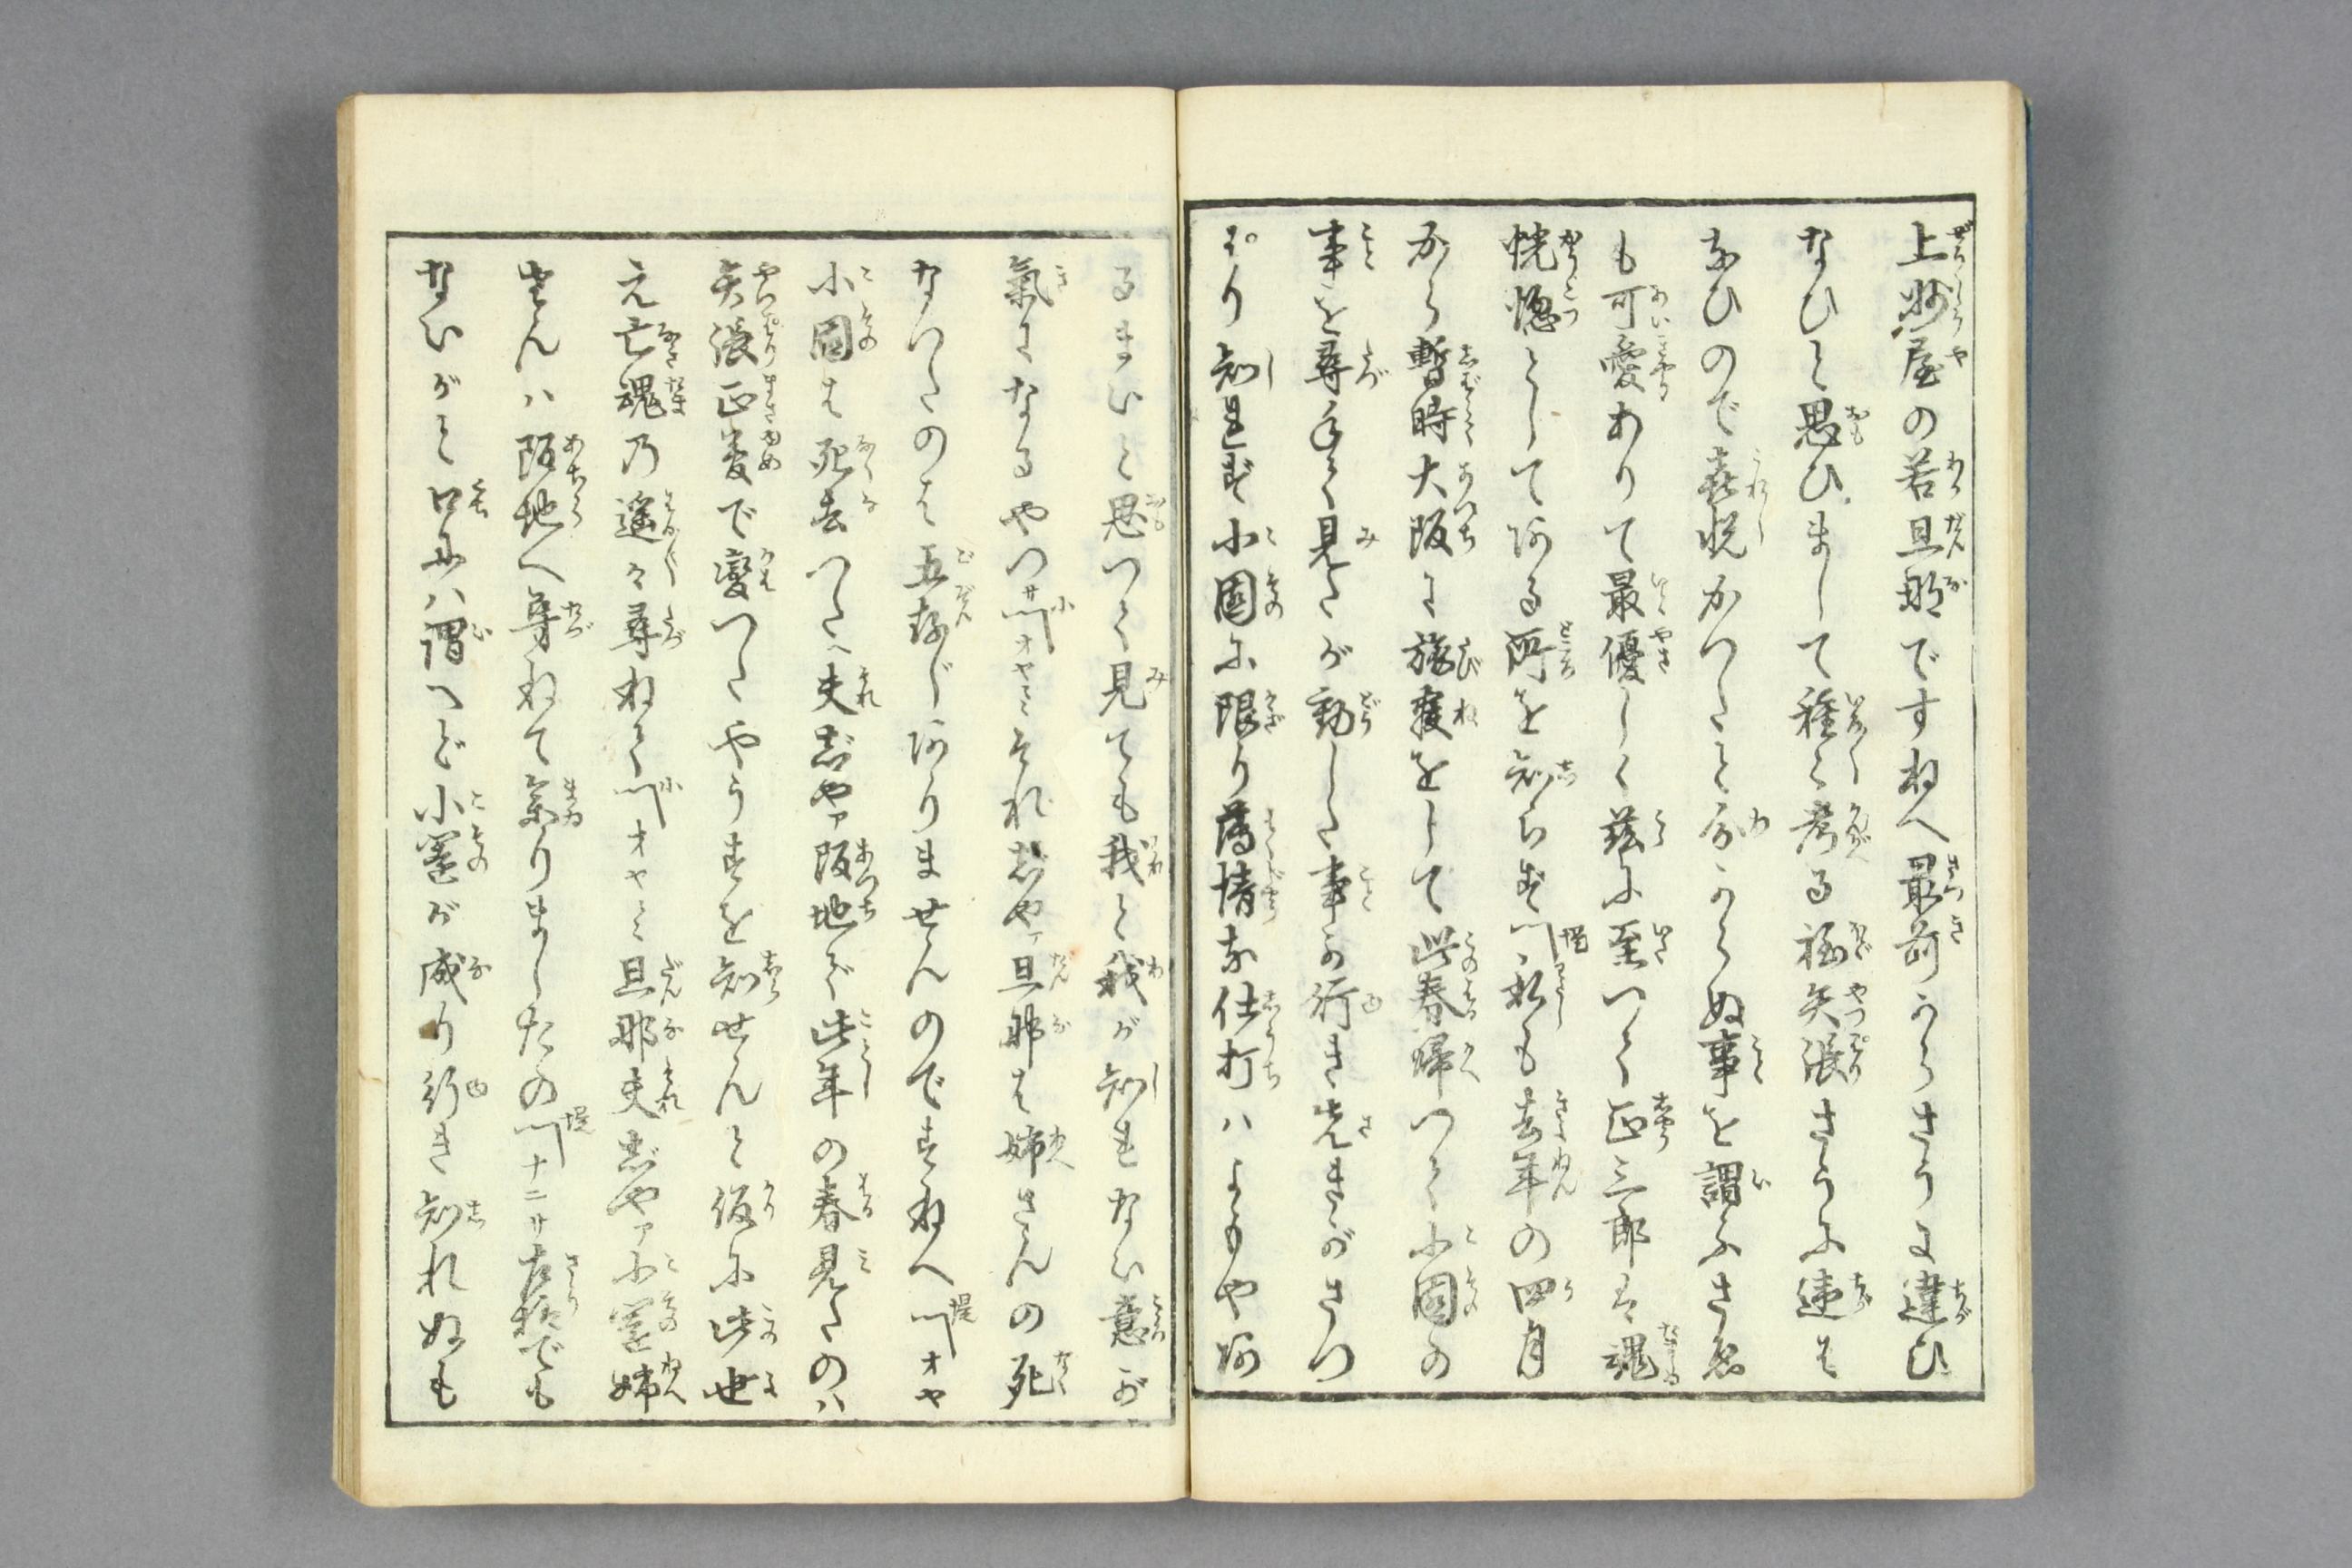 上州屋の若旦那ですねへ最前からさうに違ひ
なひと思ひまして種々考る極矢張さうに違は
なひので喜悦かつたと分からぬ事を謂ふさへ
も可愛ありて最優しく茲に至つて正三郎は魂
恍惚として阿る所を知らず 私も去年の四月
から暫時大阪に旅寝をして此春帰つて小園の
事を尋ねて見たが動した事か行き先きがさつ
ぱり知れず小園に限り薄情な仕打ハよもや阿
るまいと思つて見ても我と我が知れない意が
氣になるやつサ 小 オヤそれぢやア旦那は姉さんの死
なつたのは五存じ阿りませんのですねへ 堤 オヤ
小園は死去つたへ夫ぢやア阪地で此年の春見たのハ
矢張正夢で変つたやうすを知せんと仮に此世
え亡魂の遥々尋ねて 小 オヤ旦那夫ぢやア小園姉
さんハ阪地へ尋ねて参りましたの 堤 ナニサ左様でも
ないがと口にハ謂へど小園が成り行き知れぬも